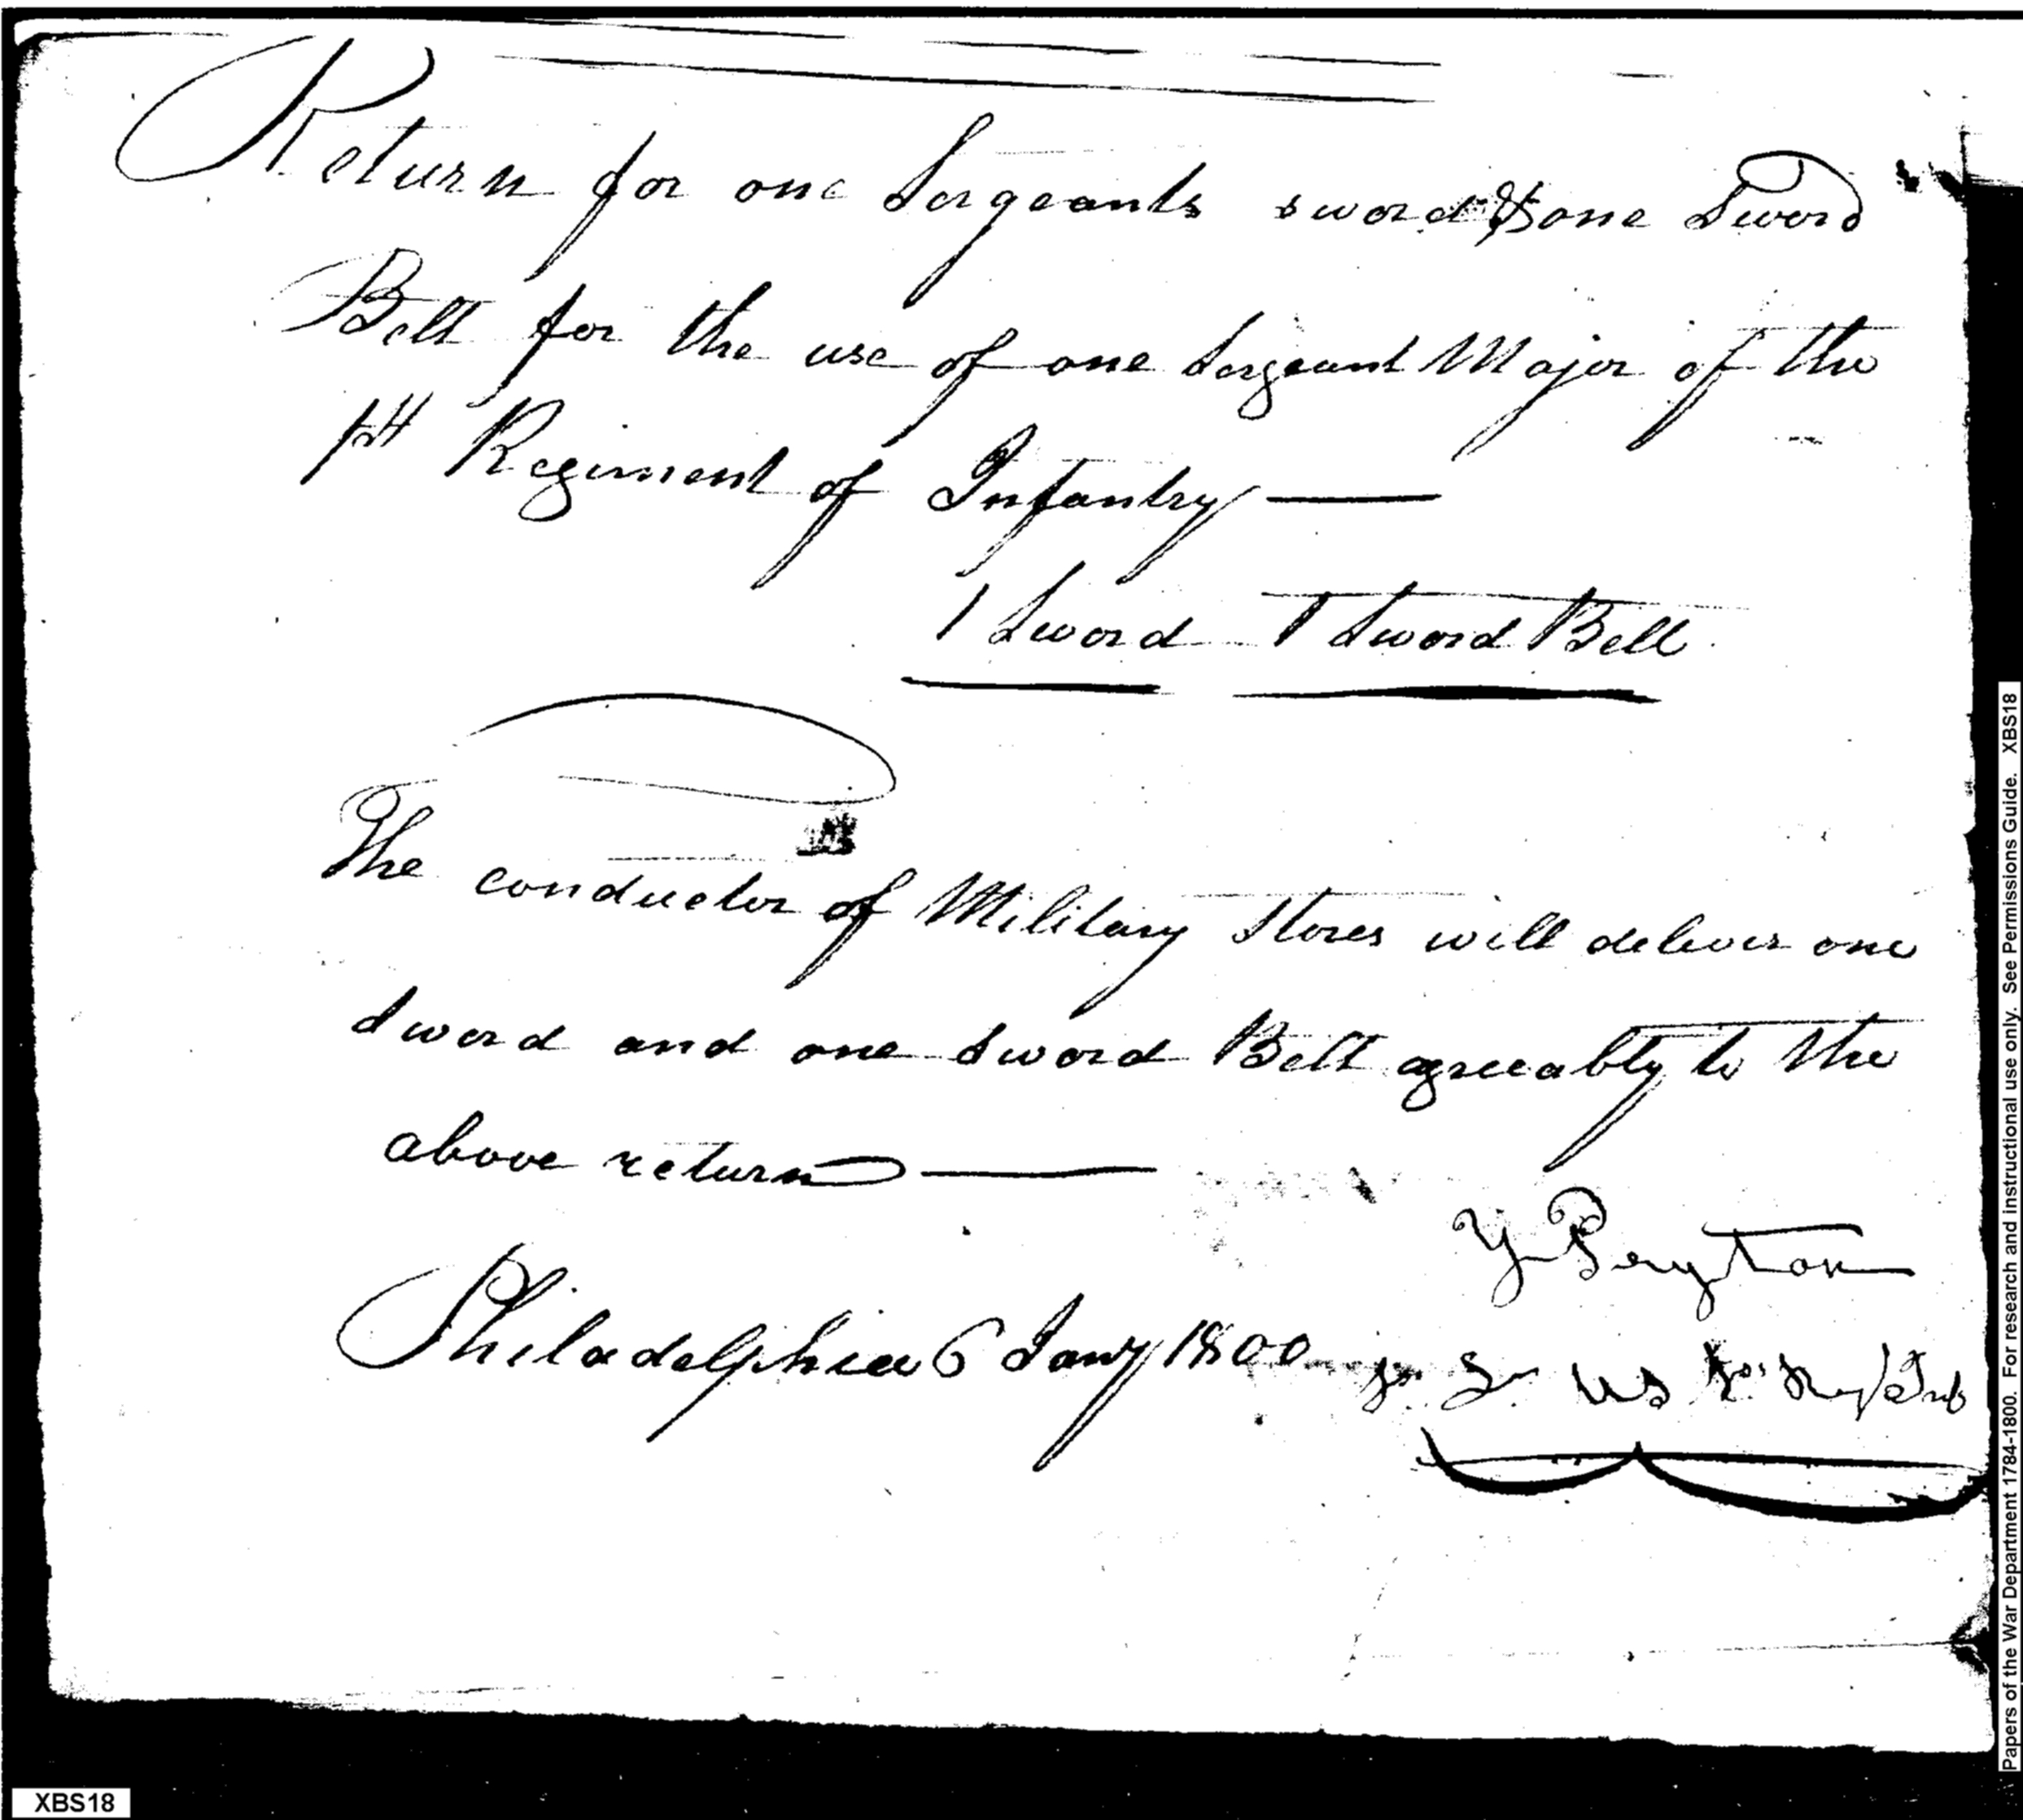 Return for one Sergeants sword & one Sword
Belt for the use of one Sergeant Major of the
1st Regiment of Infantry —
1 Sword 1 Sword Belt
The conductor of Military Stores will deliver one
Sword and one Sword Belt agreeably to the
above return —
Y Peyton
Philadelphia 6 Jany 1800 US
XBS18
Papers of the War Department 1784-1800. For research and instructional use only. See Permissions Guide. XBS18